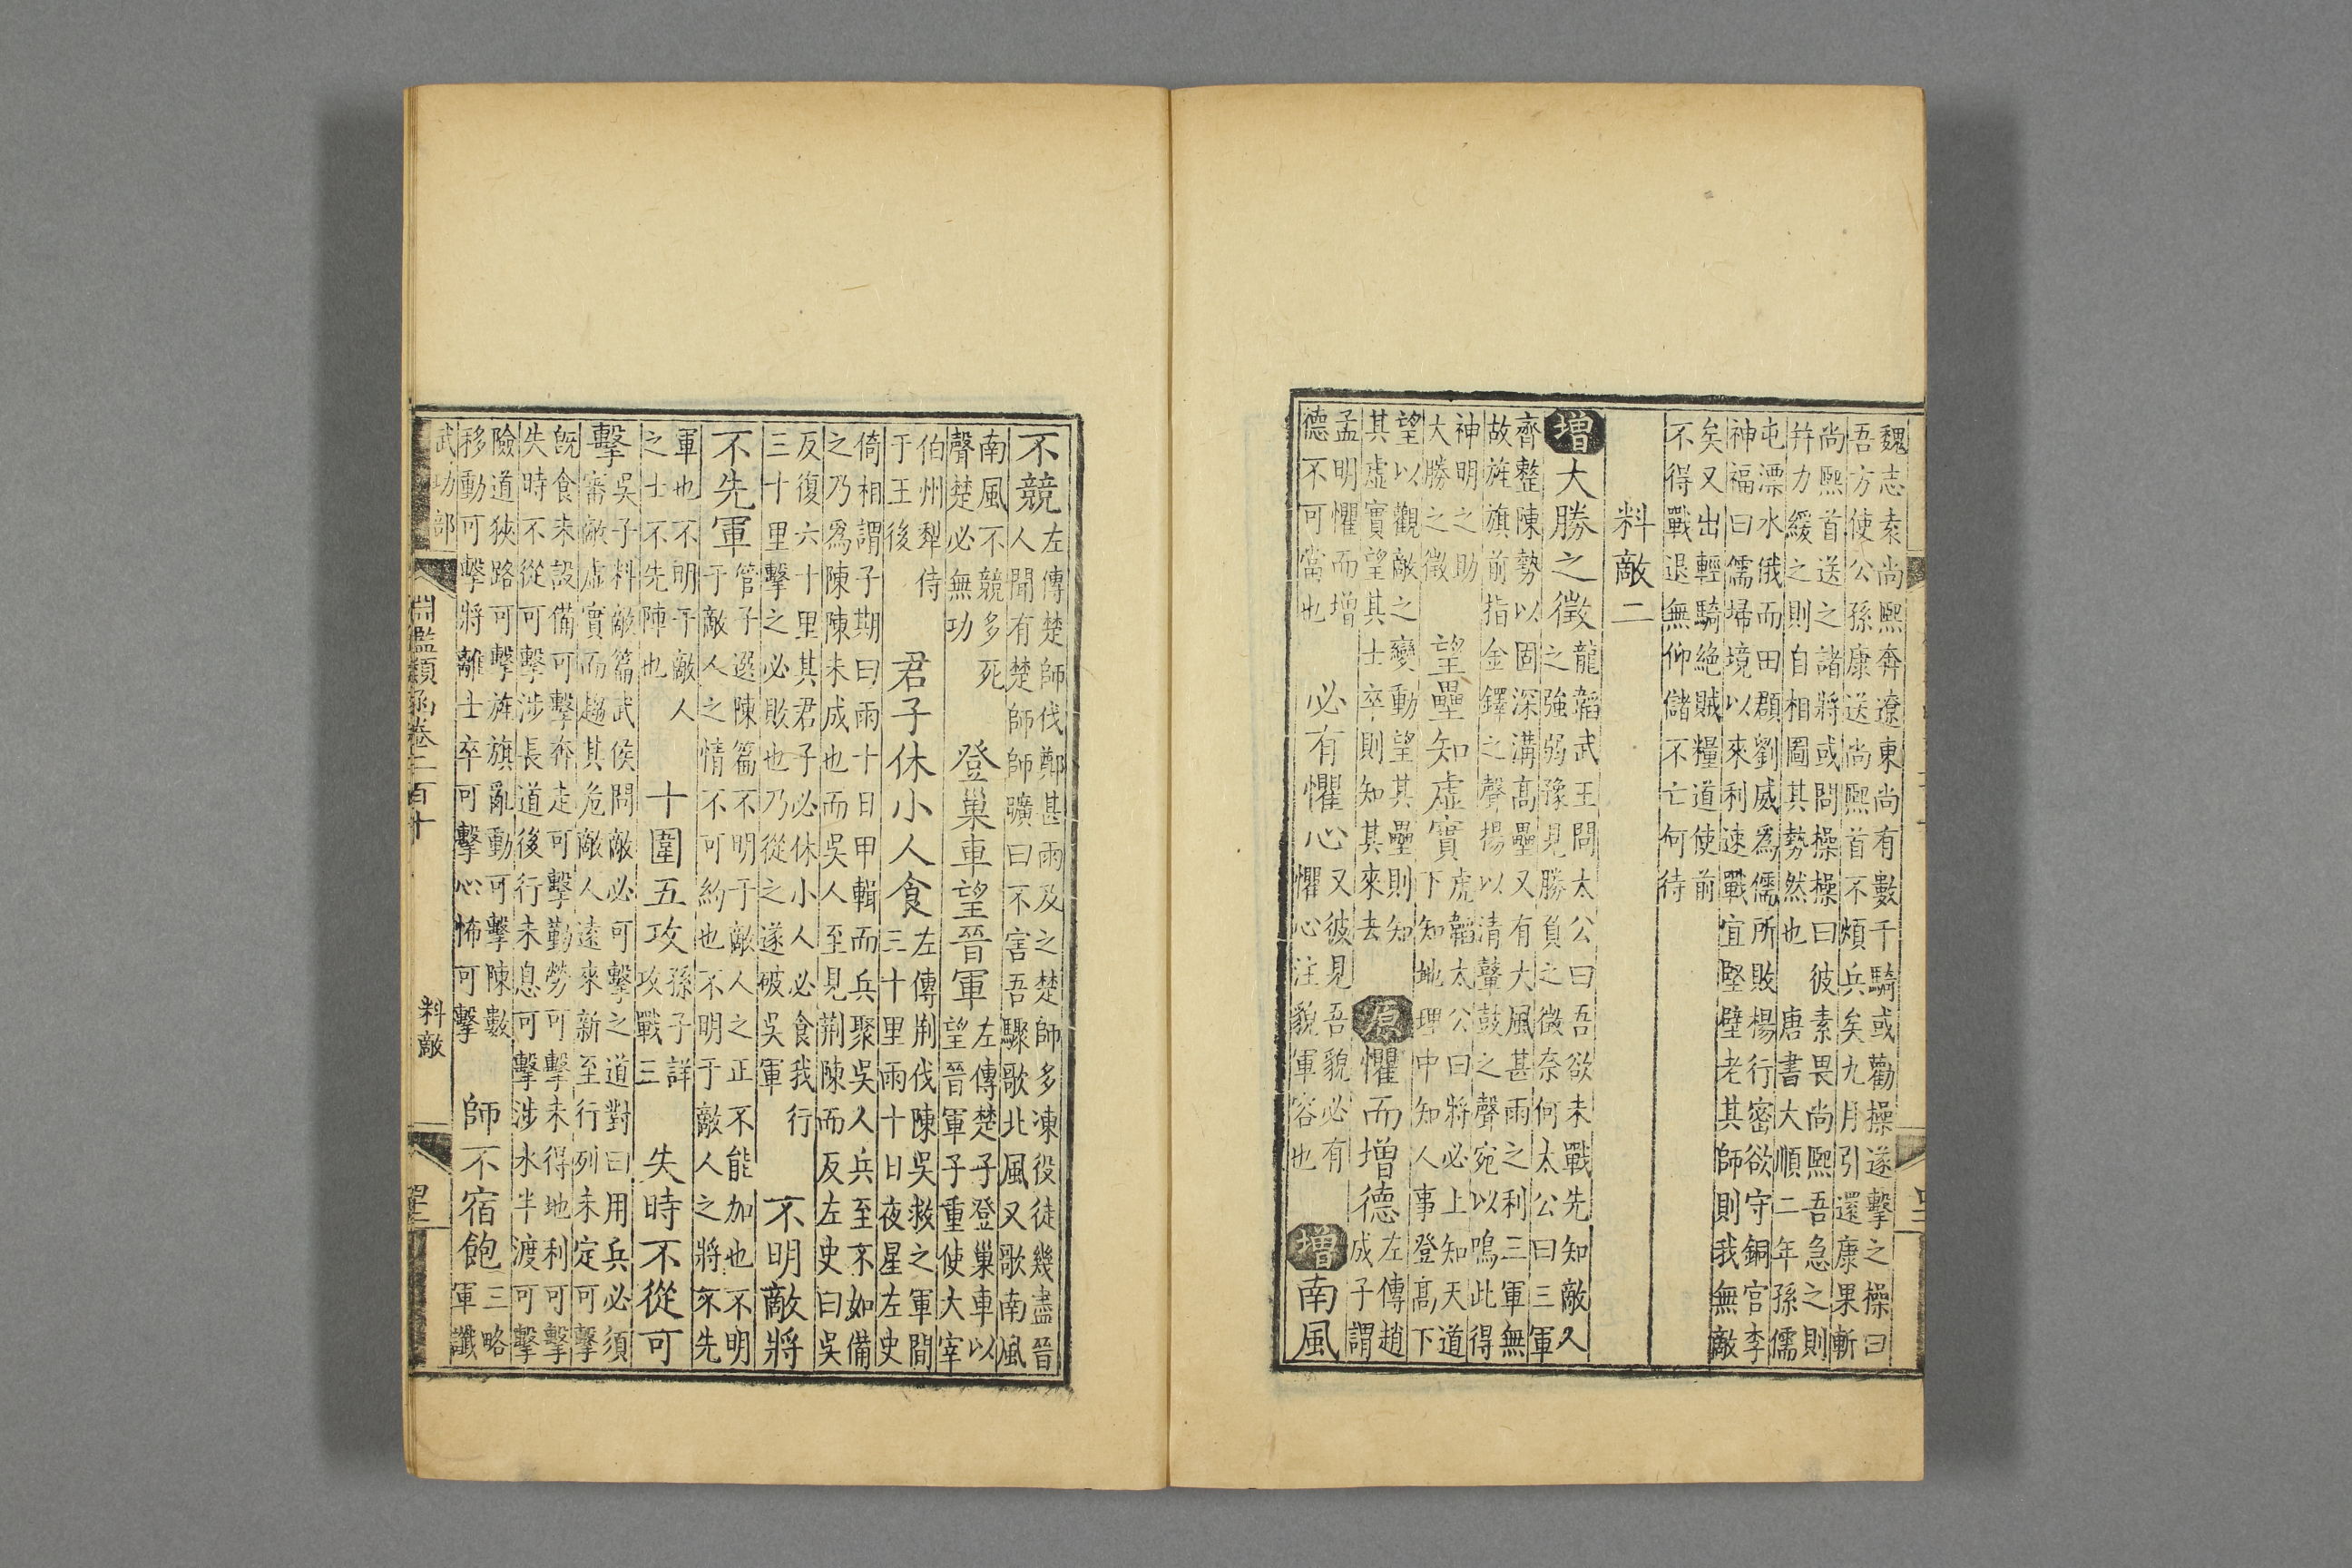 魏志袁尚熙奔遼東尚有數千騎或勸操遂擊之操曰
吾方使公孫康送尚熙首不煩兵矣九月引還康果斬
尚熙首送之諸將或問操操曰彼素畏尚熙吾急之則
幷力緩之則自相圖其勢然也 唐書大順二年孫儒
屯漂水俄而田頵劉威爲儒所敗楊行密欲守銅官李
神福曰儒掃境以來利速戰宜堅壁老其師則我無敵
矣又出輕騎絶賊糧道使前
不得戰退無仰儲不亡何待
料敵二
增大勝之徵
龍韜武王問太公曰吾欲未戰先知敵人
之強弱豫見勝負之徵奈何太公曰三軍
齊整陳勢以固深溝高壘又有大風甚雨之利三軍無
故旌旗前指金鐸之聲揚以清鼙鼓之聲宛以鳴此得
神明之助
大勝之徵
望壘知虛實
虎韜太公曰將必上知天道
下知地理中知人事登高下
望以觀敵之變動望其壘則知
其虛實望其士卒則知其來去
原懼而增德
左傳趙
成子謂
孟明懼而增
德不可當也
必有懼心
又彼見吾貌必有
懼心注貌軍容也
增南風
不競
左傳楚師伐鄭甚雨及之楚師多凍役徒幾盡晉
人聞有楚師師曠曰不害吾驟歌北風又歌南風
南風不競多死
聲楚必無功
登巢車望晉軍
左傳楚子登巢車以
望晉軍子重使大宰
伯州犁侍
于王後
君子休小人食
左傳荆伐陳吳救之軍間
三十里雨十日夜星左史
倚相謂子期曰雨十日甲輯而兵聚吳人兵至不如備
之乃爲陳陳未成也而吳人至見荆陳而反左史曰吳
反復六十里其君子必休小人必食我行
三十里擊之必敗也乃從之遂破吳軍
不明敵將
不先軍
管子選陳篇不明于敵人之正不能加也不明
于敵人之情不可約也不明于敵人之將不先
軍也不明于敵人
之士不先陣也
十圍五攻
孫子詳
攻戰三
失時不從可
擊
吳子料敵篇武侯問敵必可擊之道對曰用兵必須
審敵虛實而趨其危敵人遠來新至行列未定可擊
旣食未設備可擊奔走可擊勤勞可擊未得地利可擊
失時不從可擊涉長道後行未息可擊涉水半渡可擊
險道狹路可擊旌旗亂動可擊陳數
移動可擊將離士卒可擊心怖可擊
師不宿飽
三略
軍讖
武功部
淵鑑類函卷二百十
料敵